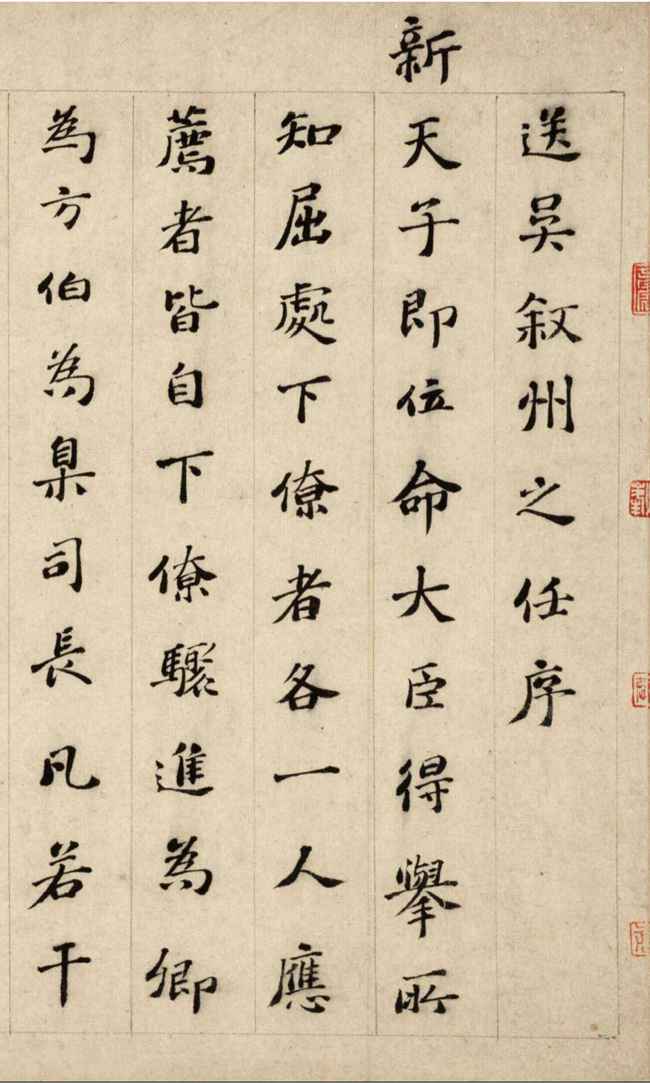 送吳敘州之任序
新天子即位命大臣得舉所
知屈處下僚者各一人應
薦者皆自下僚驟進為卿
為方伯為臬司長凡若干